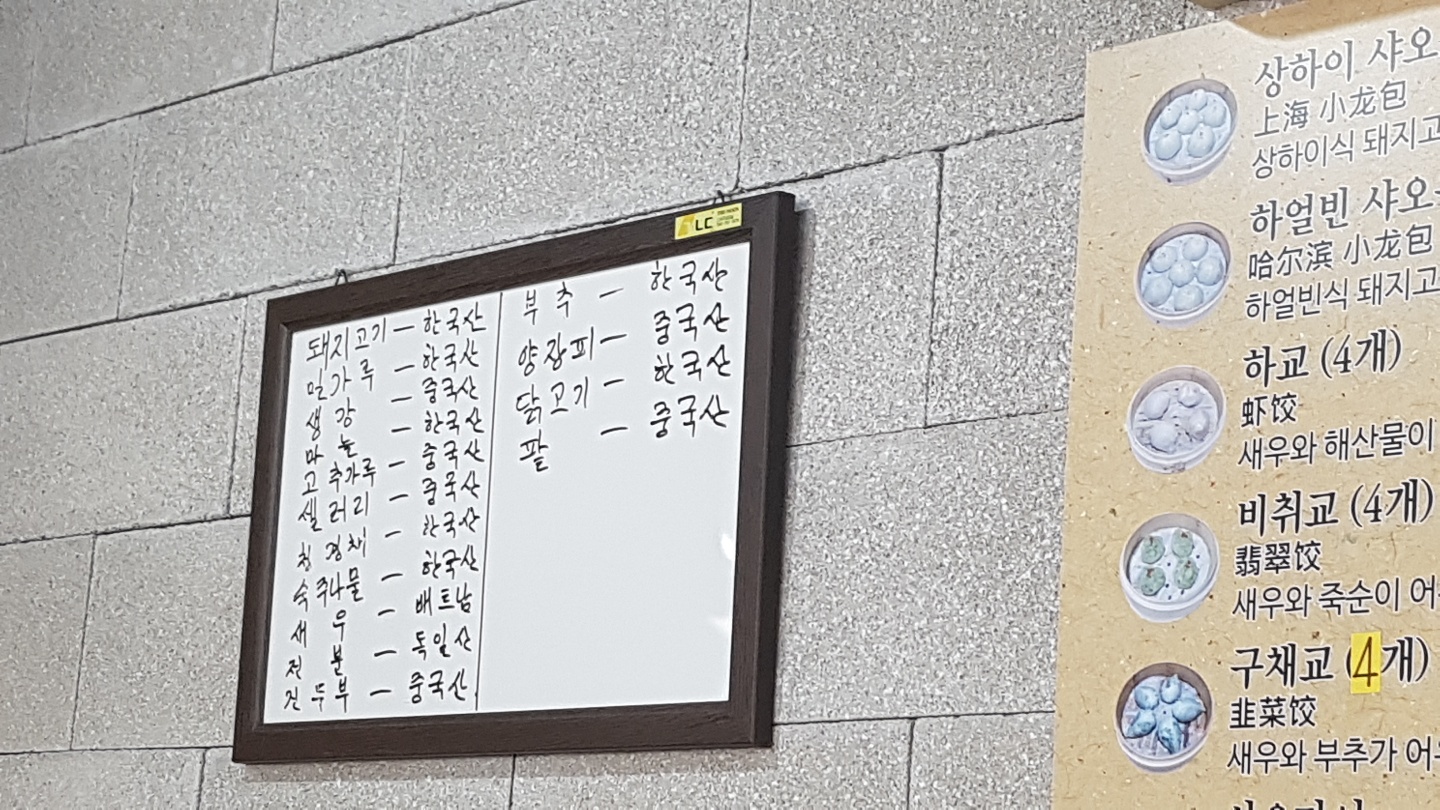 LC
돼지고기 — 한국산
밀가루 — 한국산
생강 — 중국산
마늘 — 한국산
고추가루 — 중국산
셀러리 — 중국산
청경채 — 한국산
숙주나물 — 한국산
새우 — 베트남
전분 — 독일산
건두부 — 중국산.
부추 — 한국산
양장피 — 중국산
닭고기 — 한국산
팥 — 중국산
상하이 샤오
上海 小龙包
상하이식 돼지고
하얼빈 샤오
哈尔滨 小龙包
하얼빈식 돼지고
하교 (4개)
虾饺
새우와 해산물이
비취교 (4개)
翡翠饺
새우와 죽순이 어
구채교 (4개)
韭菜饺
새우와 부추가 어